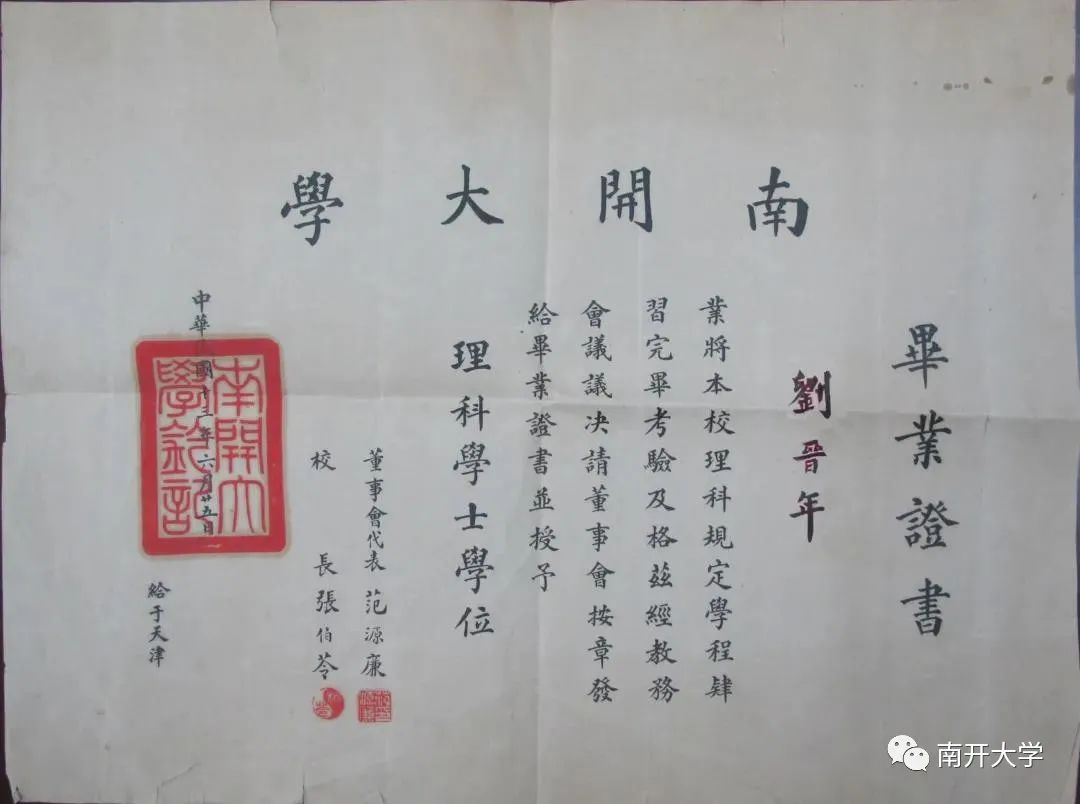 南開大學
畢業證書
劉晋年
業將本校理科規定學程肄
習完畢考驗及格茲經教務
會議議決請董事會按章發
給畢業證書並授予
理科學士學位
董事會代表 范源廉
校 長 張伯苓
中華 國十三年六月廿五日
南開大
學鈐記
給于天津
南开大学